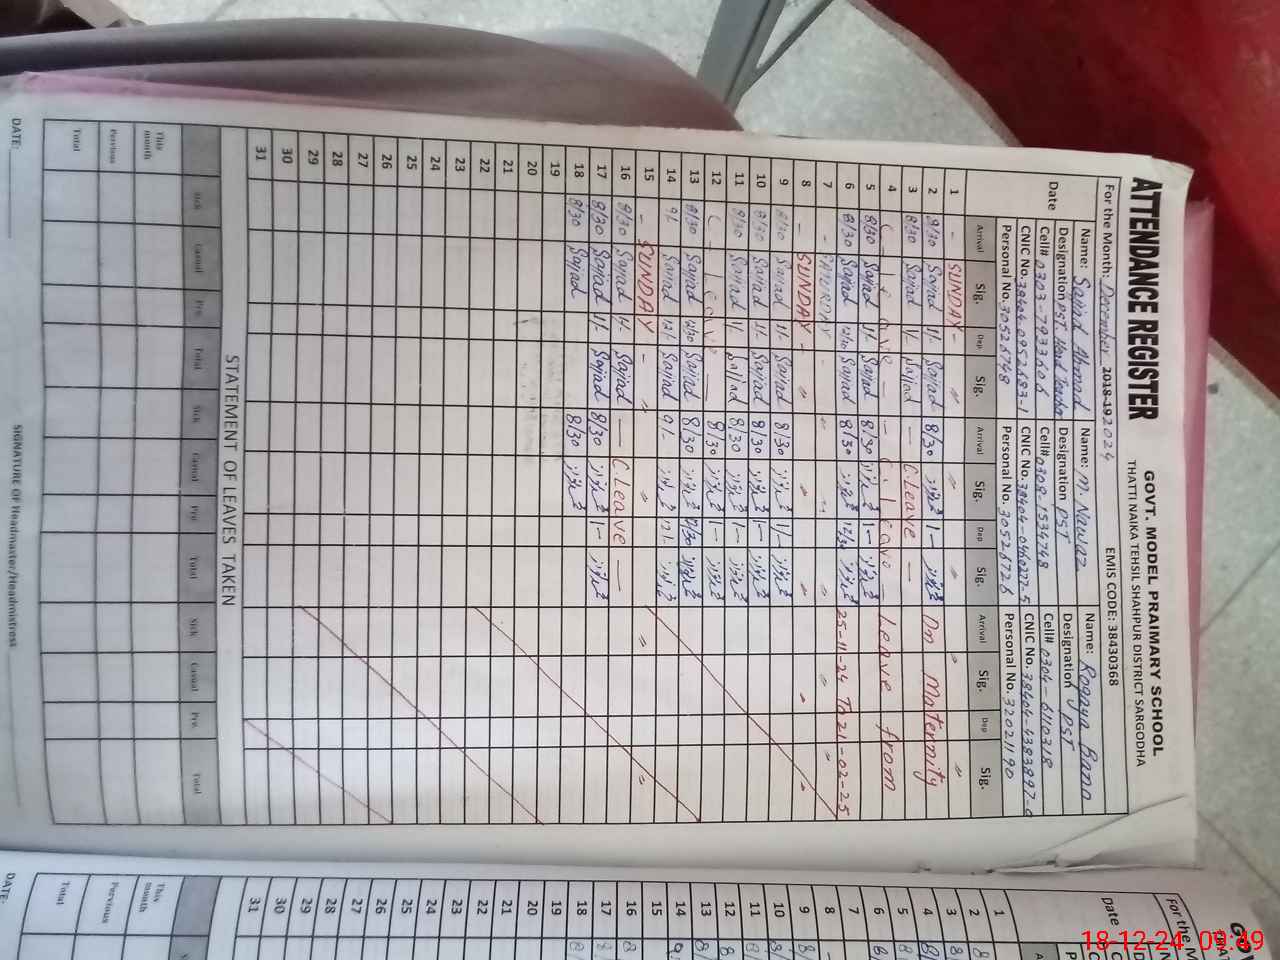 ATTENDANCE REGISTER
GOVT. MODEL PRAIMARY SCHOOL
THATTI NAIKA TEHSIL SHAHPUR DISTRICT SARGODHA
For the Month: December 2018-19 2024 EMIS CODE: 38430368
Date Name: Sajjad Ahmad Name: M. Nawaz Name: Roqaya Bano
Designation PST. Head Teacher Designation PST Designation PST
Cell# 0303-7933606 Cell# 0308-1534748 Cell# 0304-6110318
CNIC No. 38404-0952683-1 CNIC No. 38404-0460277-5 CNIC No. 38404-4383897-0
Personal No. 30526748 Personal No. 30526726 Personal No. 32021190
Arrival Sig. Dep Sig. Arrival Sig. Dep Sig. Arrival Sig. Dep Sig.
1 - SUNDAY - " " " " "
2 8/30 Sajjad 1/- Sajjad 8/30 1- On Maternity
3 8/30 Sajjad 1/- Sajjad — C Leave —
4 C - Leave — C. Leave — Leave from
5 8/30 Sajjad 1/- Sajjad 8/30 1-
6 8/30 Sajjad 12/30 Sajjad 8/30 12/30 25-11-24 To 21-02-25
7 -
8 - SUNDAY - " " " "
9 8/30 Sajjad 1/- Sajjad 8/30 1/-
10 8/30 Sajjad 1/- Sajjad 8/30 1-
11 8/30 Sajjad 1/- Sajjad 8/30 1-
12 C - Leave — 8/30 1-
13 8/30 Sajjad 12/30 Sajjad 8/30 12/30
14 9/- Sajjad 12/- Sajjad 9/- 12/-
15 - SUNDAY - " " " "
16 8/30 Sajjad 1/- Sajjad — C Leave —
17 8/30 Sajjad 1/- Sajjad 8/30 1-
18 8/30 Sajjad 8/30
19
20
21
22
23
24
25
26
27
28
29
30
31
STATEMENT OF LEAVES TAKEN
Sick Casual Pre. Total Sick Casual Pre Total Sick Casual Pre. Total
This month
Previous
Total
DATE: SIGNATURE OF Headmaster/Headmistress
GO
For the M
Date
1
2 8
3 8
4 8/
5 8
6 8
7
8
9 8/
10 8/
11 8/
12 8
13 8/
14 9
15
16 8
17 8
18 8/
19
20
21
22
23
24
25
26
27
28
29
30
31
This month
Previous
Total
DATE:
18-12-24 09:49